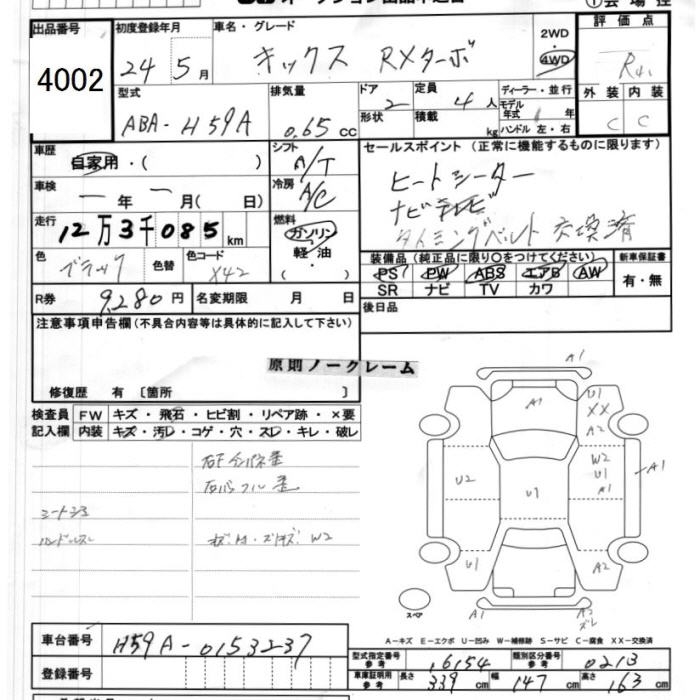 出品番号 初度登録年月 車名・グレード 2WD 評価点
4002 24年5月 キックス RXターボ 4WD R4
型式 排気量 ドア 定員 ディーラー・並行 外装 内装
ABA-H59A 0.65 cc 2 4人 モデル年式 年 C C
形状 積載 kg ハンドル 左・右
車歴 シフト セールスポイント(正常に機能するものに限ります)
自家用・( ) A/T
ヒートシーター
車検 冷房
ー年ー月( 日) A/C
ナビ テレビ
走行 燃料
12万3千085km ガソリン・軽油・( )
タイミングベルト 交換済
色 色替 色コード
ブラック X42
装備品(純正品に限り○をつけてください) 新車保証書
PS PW ABS エアB AW 有・無
SR ナビ TV カワ
R券 9,280円 名変期限 月 日 後日品
注意事項申告欄(不具合内容等は具体的に記入して下さい)
原則ノークレーム
修復歴 有〔箇所 〕
検査員記入欄
FW キズ・飛石・ヒビ割・リペア跡・×要
内装 キズ・汚レ・コゲ・穴・スレ・キレ・破レ
W2
A1
A1 U1 XX
A2
W2 U1 A1
A1
U2 U1
U1 A2
A1 A2 スレ
スペア
A-キズ E-エクボ U-凹み W-補修跡 S-サビ C-腐食 XX-交換済
車台番号 H59A-0153237
登録番号
型式指定番号 参考 16154 類別区分番号 参考 0213
車庫証明用 参考 長さ 339cm 幅 147cm 高さ 163cm